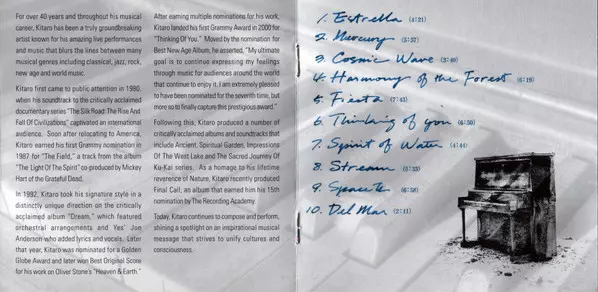 For over 40 years and throughout his musical
career, Kitaro has been a truly groundbreaking
artist known for his amazing live performances
and music that blurs the lines between many
musical genres including classical, jazz, rock,
new age and world music.
Kitaro first came to public attention in 1980,
when his soundtrack to the critically acclaimed
documentary series "The Silk Road: The Rise And
Fall Of Civilizations" captivated an international
audience. Soon after relocating to America,
Kitaro earned his first Grammy nomination in
1987 for "The Field," a track from the album
"The Light Of The Spirit" co-produced by Mickey
Hart of the Grateful Dead.
In 1992, Kitaro took his signature style in a
distinctly unique direction on the critically
acclaimed album "Dream," which featured
orchestral arrangements and Yes' Jon
Anderson who added lyrics and vocals. Later
that year, Kitaro was nominated for a Golden
Globe Award and later won Best Original Score
for his work on Oliver Stone's "Heaven & Earth."
After earning multiple nominations for his work,
Kitaro landed his first Grammy Award in 2000 for
"Thinking Of You." Moved by the nomination for
Best New Age Album, he asserted, "My ultimate
goal is to continue expressing my feelings
through music for audiences around the world
that continue to enjoy it. I am extremely pleased
to have been nominated for the seventh time, but
more so to finally capture this prestigious award."
Following this, Kitaro produced a number of
critically acclaimed albums and soundtracks that
include Ancient, Spiritual Garden, Impressions
Of The West Lake and The Sacred Journey Of
Ku-Kai series. As a homage to his lifetime
reverence of Nature, Kitaro recently produced
Final Call, an album that earned him his 15th
nomination by The Recording Academy.
Today, Kitaro continues to compose and perform,
shining a spotlight on an inspirational musical
message that strives to unify cultures and
consciousness.
1. Estrella (4:21)
2. Mercury (5:57)
3. Cosmic Wave (3:40)
4. Harmony of the Forest (6:19)
5. Fiesta (7:43)
6. Thinking of you (6:50)
7. Spirit of Water (4:44)
8. Stream (5:33)
9. (6:38)
10. Del Mar (2:11)